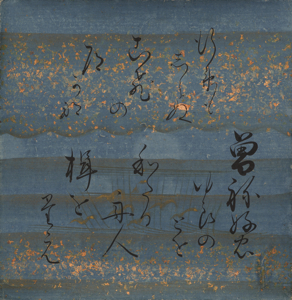 曽祢好忠
ゆらの
とを
和たる
舟人
梶を
たえ
行衛も
しらぬ
こひの
道かな